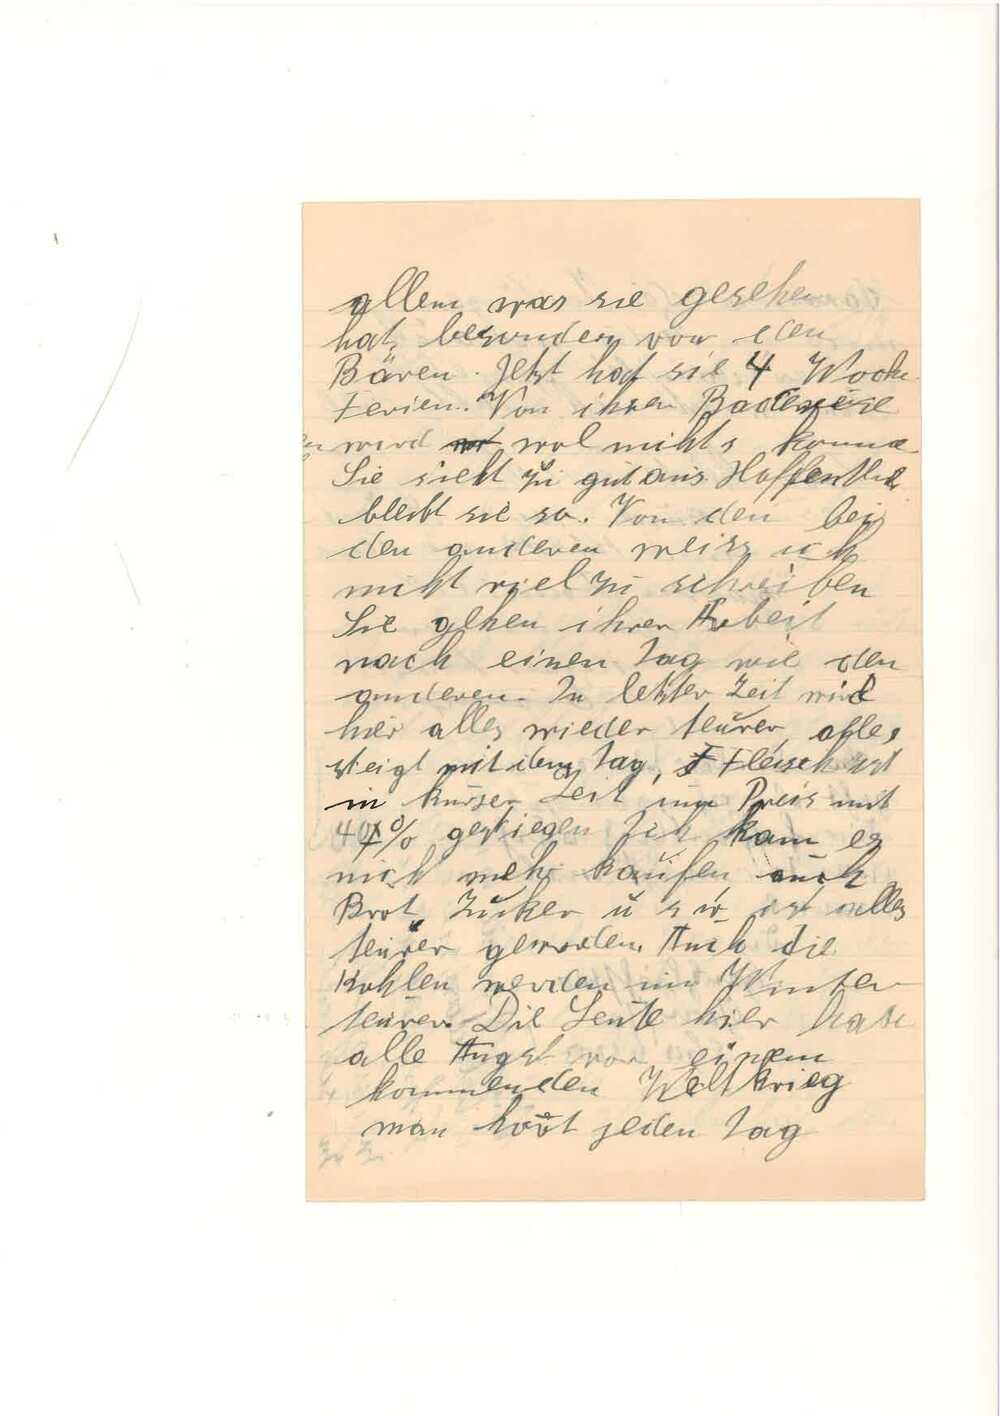 allem was sie gesehen
hat, besonders von den
Bären. Jetzt hat sie 4 Woche
Ferien. Von ihrer Badereise
wird wol nichts komme
Sie sieht zu gut aus. Hoffentlich
bleibt sie so. Von den bei
den anderen weiss ich
nicht viel zu schreiben
Sie gehen ihrer Arbeit
nach einen Tag wie den
anderen. In letzter Zeit wird
hier alles wieder teurer, alles
steigt mit dem Tag, Fleisch ist
in kurzer Zeit im Preis mit
40% gestiegen. Ich kam es
nicht mehr kaufen auch
Brot, Zucker u s w. ist alles
teurer geworden. Auch die
Kohlen werden im Winter
teurer. Die Leute hier habe
alle Angst vor einem
kommenden Weltkrieg
man hört jeden Tag